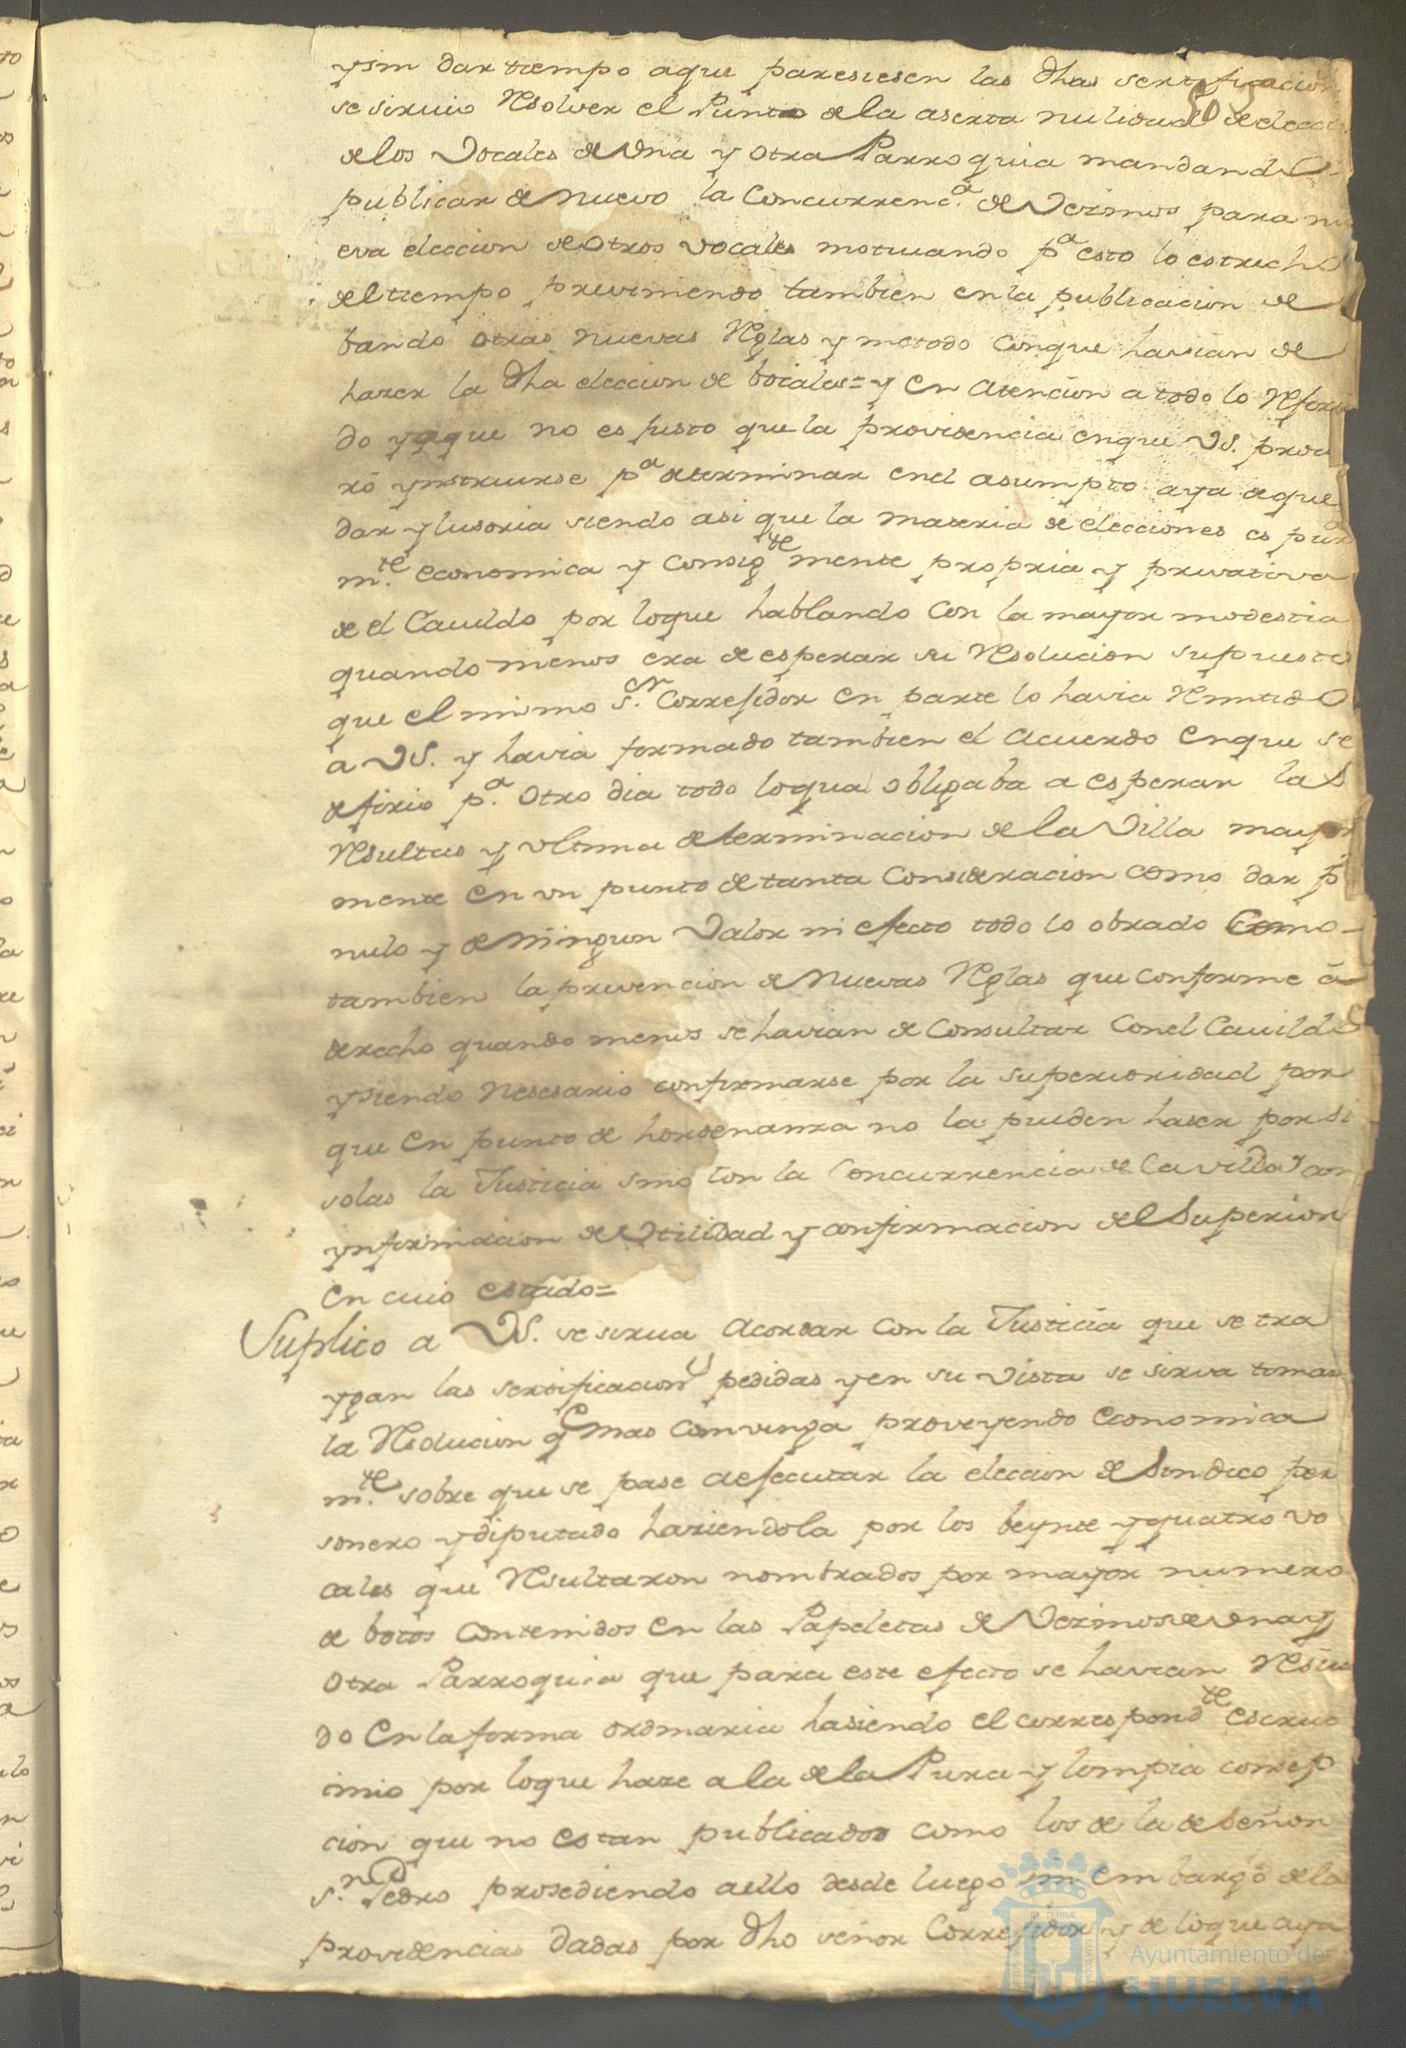 ysin dar tiempo aque paresiesen las dhas sertificacion
se siruio Resolver el Punto dela aserta nulidad de elecci
delos Vocales de Vna y otra Parroquia mandando
publicar de nuevo la Concurrenc.a de Vezinos para nu
eva eleccion de Otros vocales motivando p.a esto lo estrecho
del tiempo previniendo tambien enla publicacion de
bando otras nuevas Reglas y metodo conque havian de
hazer la dha eleccion de bocales= y en atencion a todo lo Referi
do yaque no es justo que la providencia enque VS. procu
ró ynstruirse p.a determinar enel asumpto aya de que
dar ylusoria siendo asi que la materia de elecciones es pura
m.te economica y Consig.te mente propria y privativa
de el Cavildo por loque hablando Con la mayor modestia
quando menos era de esperar su Resolucion supuesto
que el mismo S.or Correjidor en parte lo havia Remitido
a VS. y havia formado tambien el Acuerdo enque se
difirio p.a otro dia todo loqual obligaba a esperar las
Resultas y vltima determinacion de la Villa mayor
mente en vn punto de tanta Consideracion como dar p.r
nulo y de ningun Valor ni efecto todo lo obrado Como
tambien la prevencion de nuevas Reglas que conforme á
derecho quando menos se havian de Consultar Conel Cavildo
ysiendo Nesesario confirmarse por la superioridad por
que en punto de hordenanza no la pueden haser por si
solas la Justicia sino Con la Concurrencia de la villa con
ynformacion de Vtilidad y confirmacion del Superior
en cuio estado=
Suplico a VS. se sirua Acordar con la Justicia que se tra
ygan las sertificacion.s pedidas yen su vista se sirva tomar
la Resolucion q.e mas Convenga proveyendo economica
m.te sobre que se pase aejecutar la eleccion de Sindico per
sonero ydiputado haziendola por los beynte yquatro vo
cales que Resultaron nombrados por mayor numero
de botos contenidos en las Papeletas de Vezinos de vna y
otra Parroquia que para este efecto se havian Resivi
do en la forma ordinaria hasiendo el correspond.te escruti
nio por loque haze a la de la Pura y limpia consep
cion que no estan publicados como los de la de Señor
S.n Pedro prosediendo aello desde luego sin embargo de las
providencias dadas por dho señor Correjidor y de loque aya
Ayuntamiento de
HUELVA